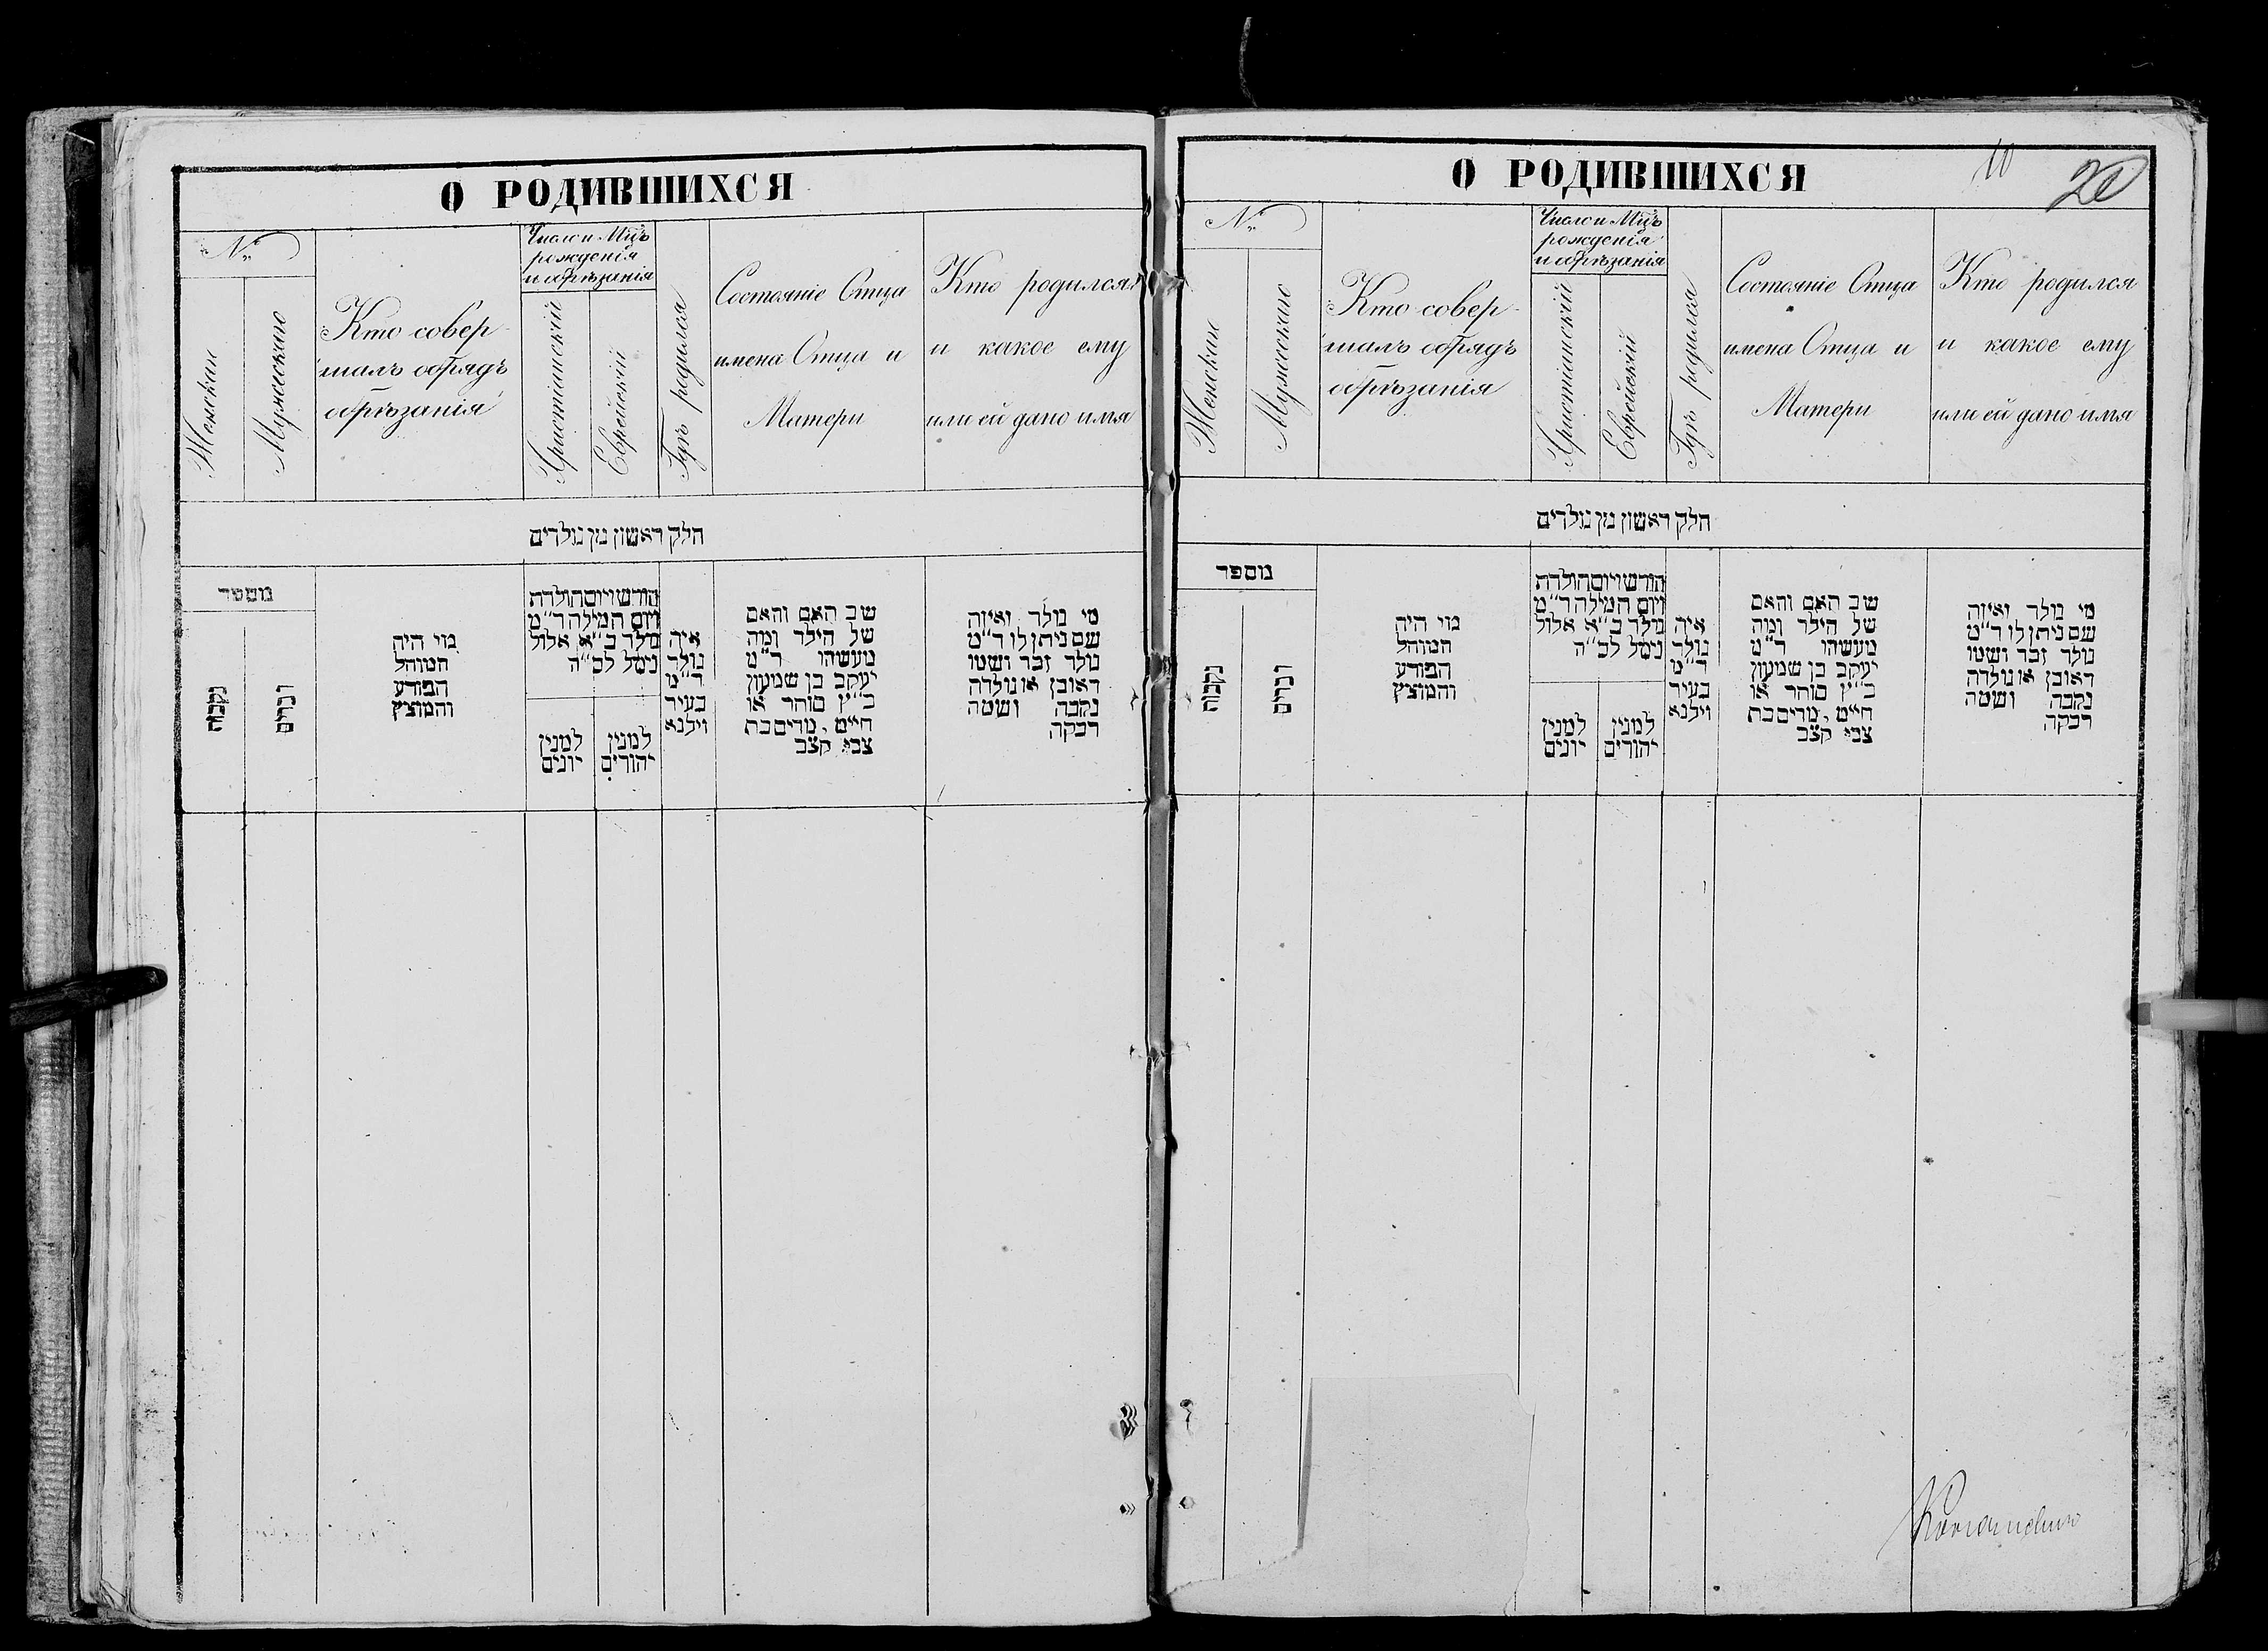 О РОДИВШИХСЯ
№
Женскаго
Мужескаго
Кто совер-
шалъ обрядъ
обрѣзанія
Число и Мцъ
рожденія
и обрѣзанія
Христіанскій
Еврейскій
Гдѣ родился
Состояніе Отца
имена Отца и
Матери
Кто родился
и какое ему
или ей дано имя
חלק ראשון מן נולדים
מספר
נקבות
זכרים
מי היה
המוהל
הפורע
והמוצץ
חודש ויום הולדת
ויום המילה ד״מ
נולד ב״א אלול
נימל לס״ה
למנין
יונים
למנין
יהודים
איה
נולד
ד״מ
בעיר
וילנא
שב האם והאם
של הילד ומה
מעשיהו ד״מ
יעקב בן שמעון
כ״ץ סוחר או
חייט, מרים בת
צבי קצב
מי נולד ואיזה
שם ניתן לו ד״מ
נולד זכר ושמו
ראובן או נולדה
נקבה ושמה
רבקה
О РОДИВШИХСЯ
10
20
№
Женскаго
Мужескаго
Кто совер-
шалъ обрядъ
обрѣзанія
Число и Мцъ
рожденія
и обрѣзанія
Христіанскій
Еврейскій
Гдѣ родился
Состояніе Отца
имена Отца и
Матери
Кто родился
и какое ему
или ей дано имя
חלק ראשון מן נולדים
מספר
נקבות
זכרים
מי היה
המוהל
הפורע
והמוצץ
חודש ויום הולדת
ויום המילה ד״מ
נולד ב״א אלול
נימל לס״ה
למנין
יונים
למנין
יהודים
איה
נולד
ד״מ
בעיר
וילנא
שב האם והאם
של הילד ומה
מעשיהו ד״מ
יעקב בן שמעון
כ״ץ סוחר או
חייט, מרים בת
צבי קצב
מי נולד ואיזה
שם ניתן לו ד״מ
נולד זכר ושמו
ראובן או נולדה
נקבה ושמה
רבקה